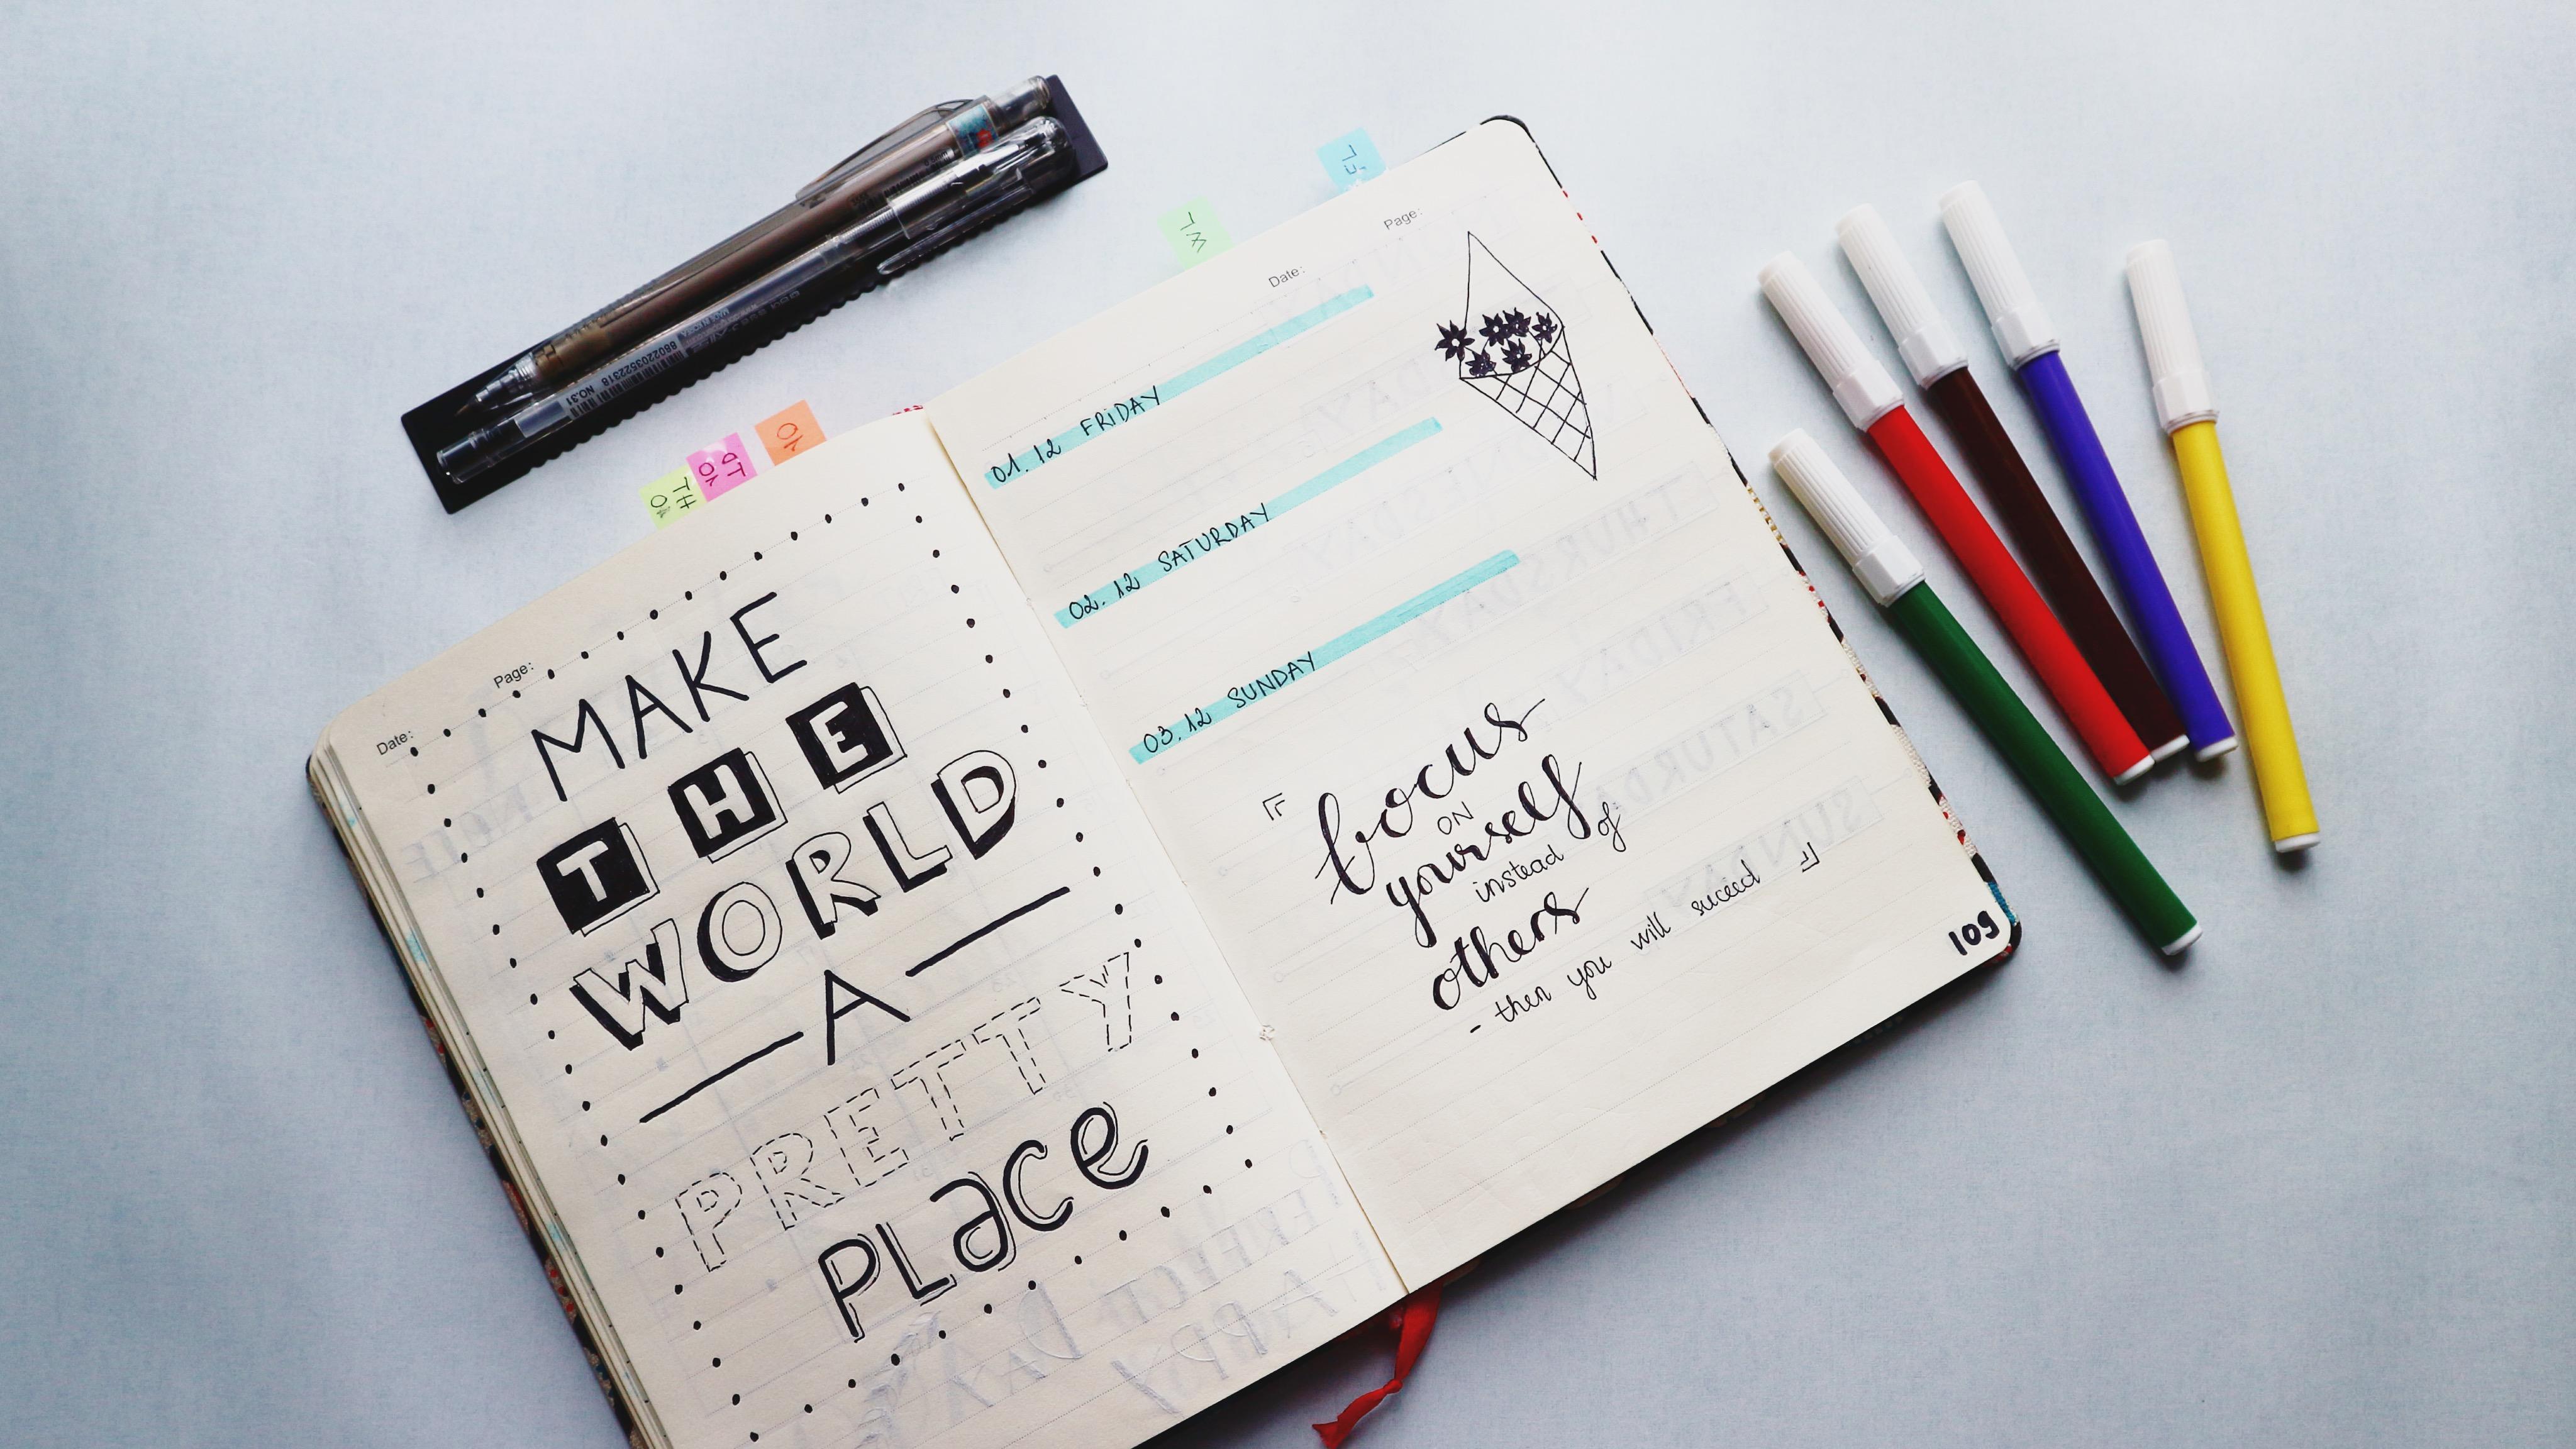 Date:
Page:
MAKE
THE
WORLD
A
PRETTY
PLace
Date:
Page:
01.12 FRiDAY
02.12 SATURDAY
03.12 SUNDAY
focus
ON
yourself
instead of
others
- then you will succeed
109
8802203522318 NO.31